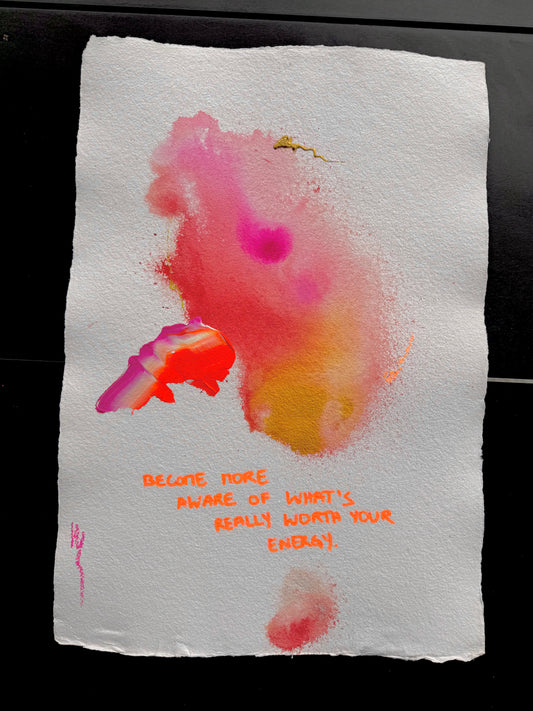 BECOME MORE
AWARE OF WHAT'S
REALLY WORTH YOUR
ENERGY.